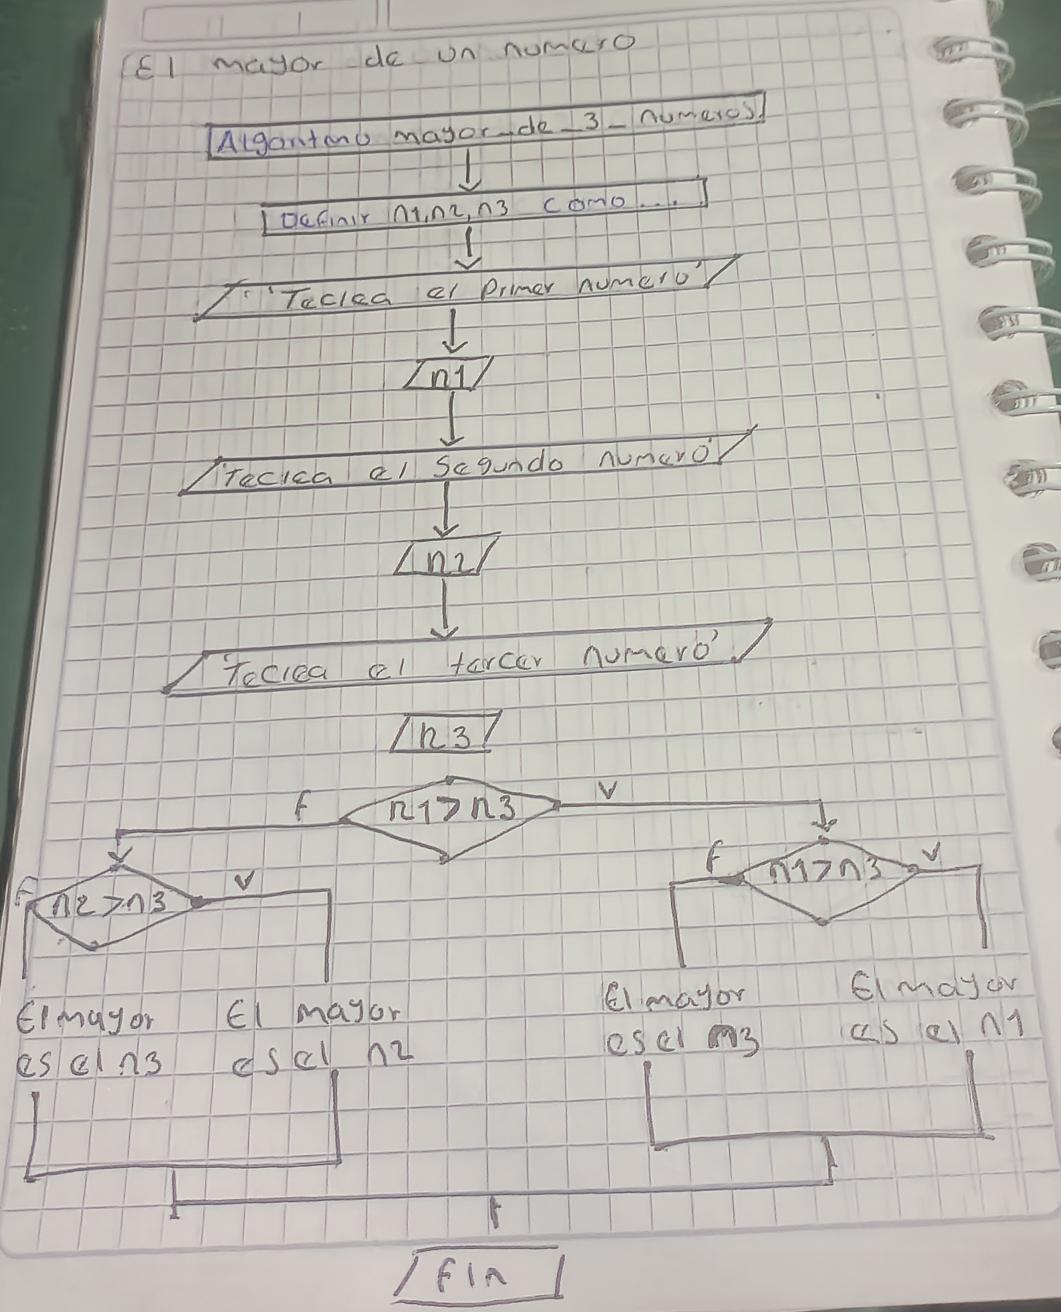 El mayor de un numero
Algoritmo mayor_de_3_numeros
Definir n1,n2,n3 como...
'Teclea el primer numero'
n1
'Teclea el Segundo numero'
n2
'Teclea el tercer numero'
n3
n1>n3
F V
n2>n3
F V
n1>n3
F V
El mayor es el n3
El mayor es el n2
El mayor es el n3
El mayor es el n1
Fin